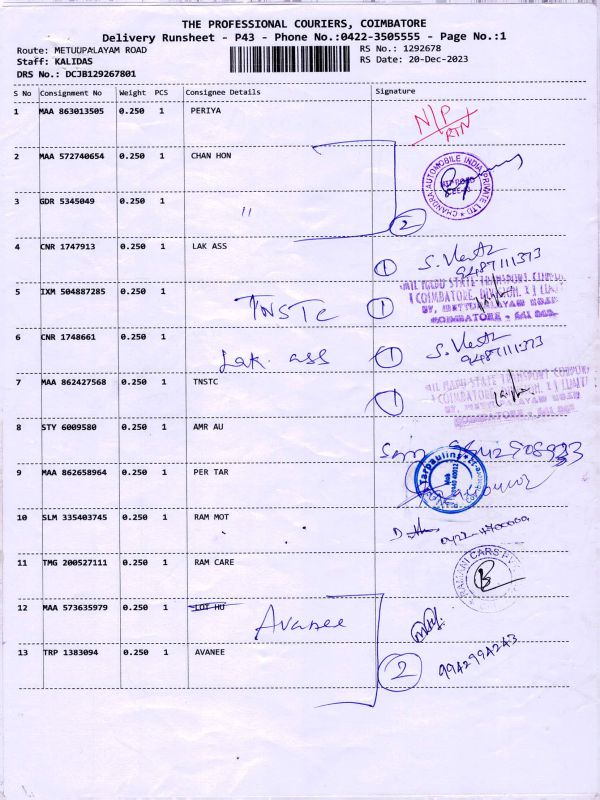 THE PROFESSIONAL COURIERS, COIMBATORE
Delivery Runsheet - P43 - Phone No.:0422-3505555 - Page No.:1
Route: METUUPALAYAM ROAD RS No.: 1292678
Staff: KALIDAS RS Date: 20-Dec-2023
DRS No.: DCJB129267801
S No Consignment No Weight PCS Consignee Details Signature
1 MAA 863013505 0.250 1 PERIYA N/P
RTN
2 MAA 572740654 0.250 1 CHAN HON
CHANDRA AUTOMOBILE INDIA PRIVATE LTD
3 GDR 5345049 0.250 1 " 2
4 CNR 1747913 0.250 1 LAK ASS 1
9487111373
5 IXM 504887285 0.250 1 TNSTC 1
COIMBATORE
6 CNR 1748661 0.250 1 Lak ass 1
9487111373
7 MAA 862427568 0.250 1 TNSTC 1
COIMBATORE
8 STY 6009580 0.250 1 AMR AU
9 MAA 862658964 0.250 1 PER TAR
Tarpauline
10 SLM 335403745 0.250 1 RAM MOT
11 TMG 200527111 0.250 1 RAM CARE
RAMANI CARS
12 MAA 573635979 0.250 1 LOT HU Avanee
13 TRP 1383094 0.250 1 AVANEE 2
9942994243